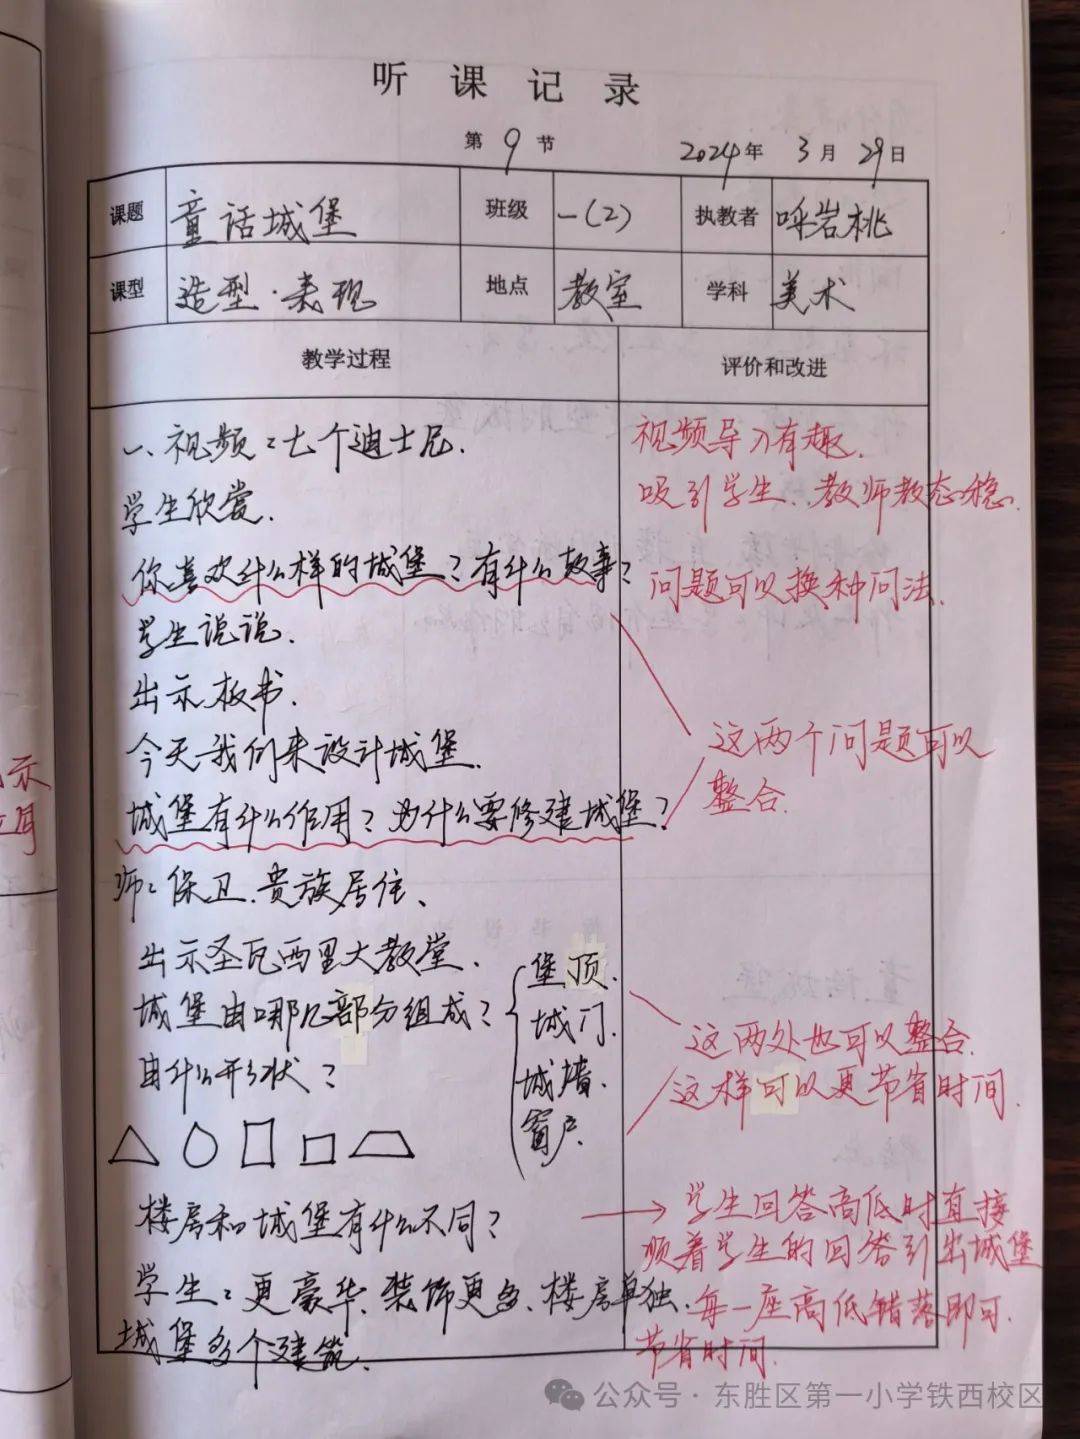 听课记录
第 9 节
2024年 3月 29日
课题 童话城堡 班级 一(2) 执教者 呼岩桃
课型 造型·表现 地点 教室 学科 美术
教学过程 评价和改进
一、视频:七个迪士尼.
学生欣赏.
你喜欢什么样的城堡?有什么故事?
学生说说.
出示板书.
今天我们来设计城堡.
城堡有什么作用?为什么要修建城堡?
师:保卫.贵族居住、
出示圣瓦西里大教堂.
城堡由哪几部分组成?
堡顶.
城门.
城墙.
窗户.
由什么形状?
楼房和城堡有什么不同?
学生:更豪华、装饰更多、楼房单独.
城堡多个建筑.
视频导入有趣.
吸引学生.教师教态稳.
问题可以换种问法.
这两个问题可以
整合.
这两处也可以整合.
这样可以更节省时间.
学生回答高低时直接
顺着学生的回答引出城堡
每一座高低错落即可.
节省时间.
示
公众号·东胜区第一小学铁西校区